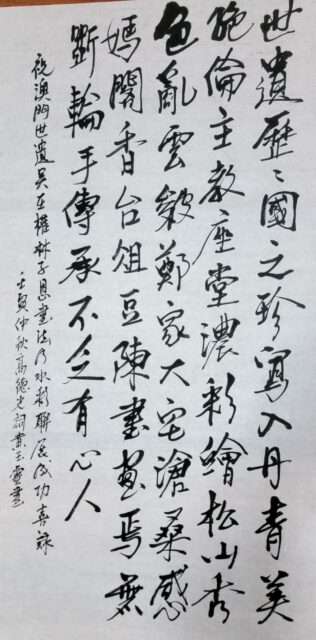 世遺歷〻國之珍寫入丹青美
絕倫主教座堂濃彩繪松山秀
色亂雲皴鄭家大宅滄桑感
媽閣香台俎豆陳書畫焉無
斲輪手傳承不乏有心人
祝澳門世遺吳在權林子恩書法及水彩聯展成功喜詠
壬寅仲秋高德光詞黃玉書